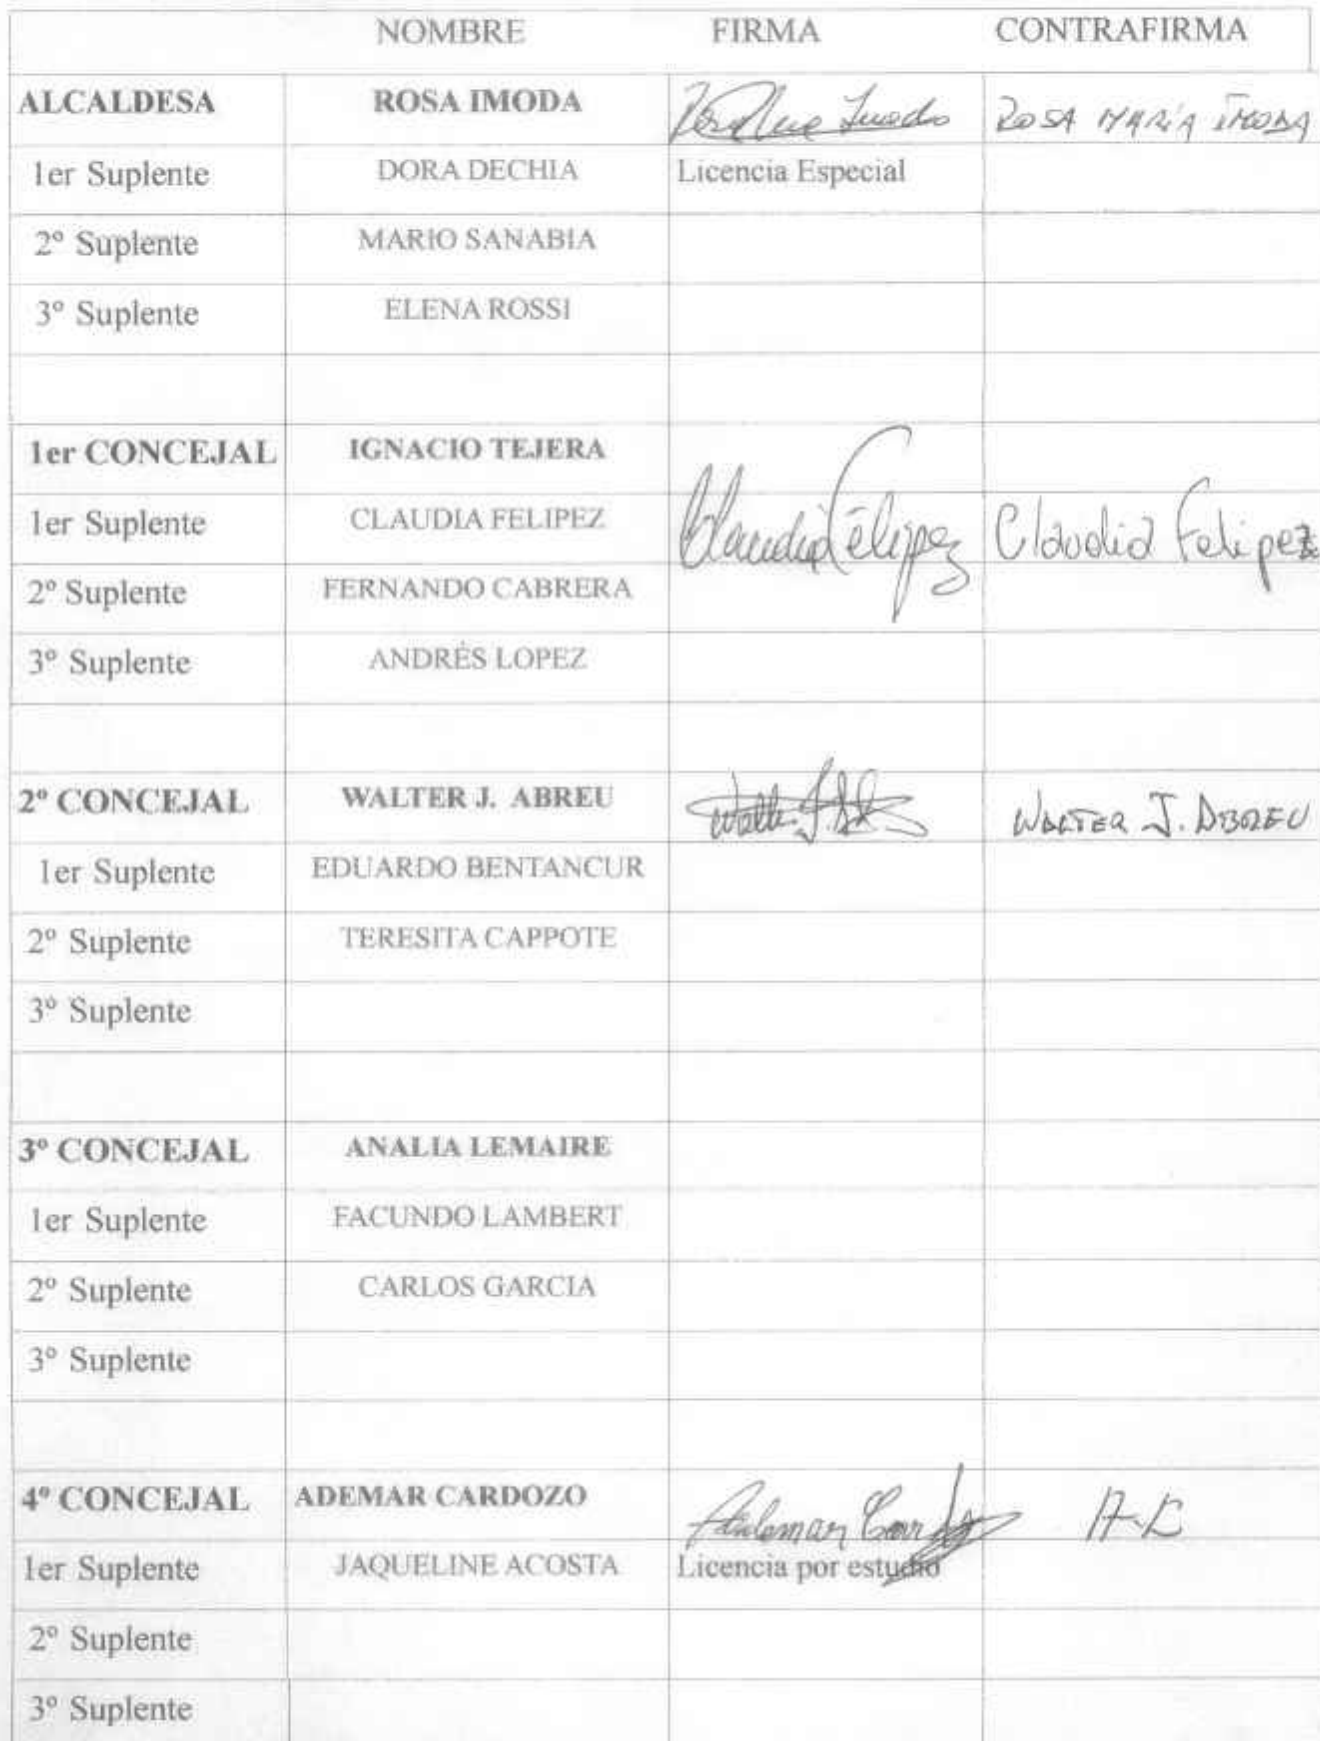 NOMBRE FIRMA CONTRAFIRMA
ALCALDESA ROSA IMODA ROSA MARÍA IMODA
1er Suplente DORA DECHIA Licencia Especial
2º Suplente MARIO SANABIA
3º Suplente ELENA ROSSI
1er CONCEJAL IGNACIO TEJERA
1er Suplente CLAUDIA FELIPEZ Claudia Felipez Claudia Felipez
2º Suplente FERNANDO CABRERA
3º Suplente ANDRÉS LOPEZ
2º CONCEJAL WALTER J. ABREU Walter J. WALTER J. ABREU
1er Suplente EDUARDO BENTANCUR
2º Suplente TERESITA CAPPOTE
3º Suplente
3º CONCEJAL ANALIA LEMAIRE
1er Suplente FACUNDO LAMBERT
2º Suplente CARLOS GARCIA
3º Suplente
4º CONCEJAL ADEMAR CARDOZO Ademar A-C
1er Suplente JAQUELINE ACOSTA Licencia por estudio
2º Suplente
3º Suplente